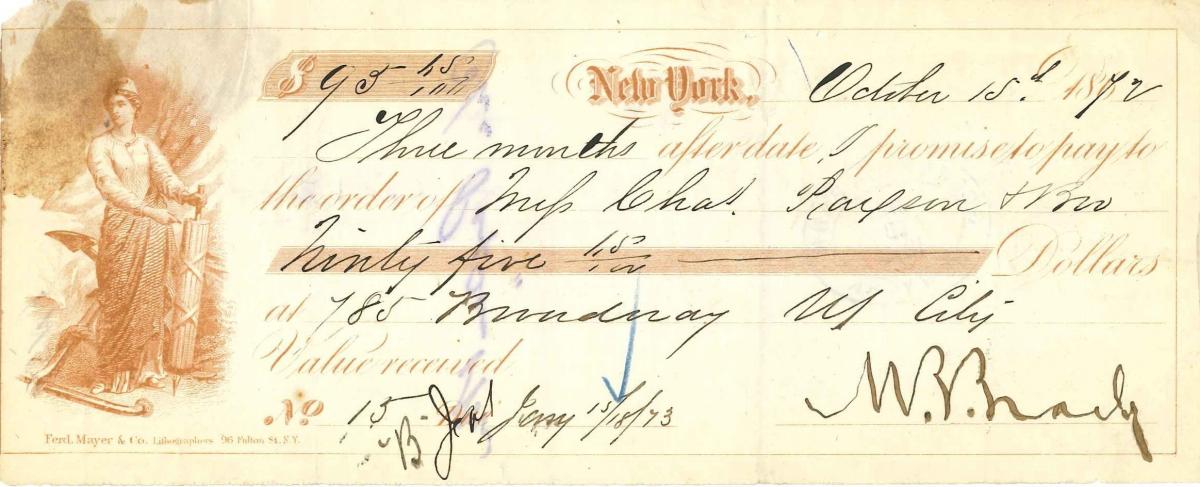 $ 95 45/100 New York. October 15th 1872
Three months after date I promise to pay to
the order of Mess Chas. & Bro
Ninty five 45/100 Dollars
at 785 Broadway NY City
Value received
No 15 Due Jany 15/18/73 M.B. Brady
B
Ferd. Mayer & Co. Lithographers 96 Fulton St. N.Y.